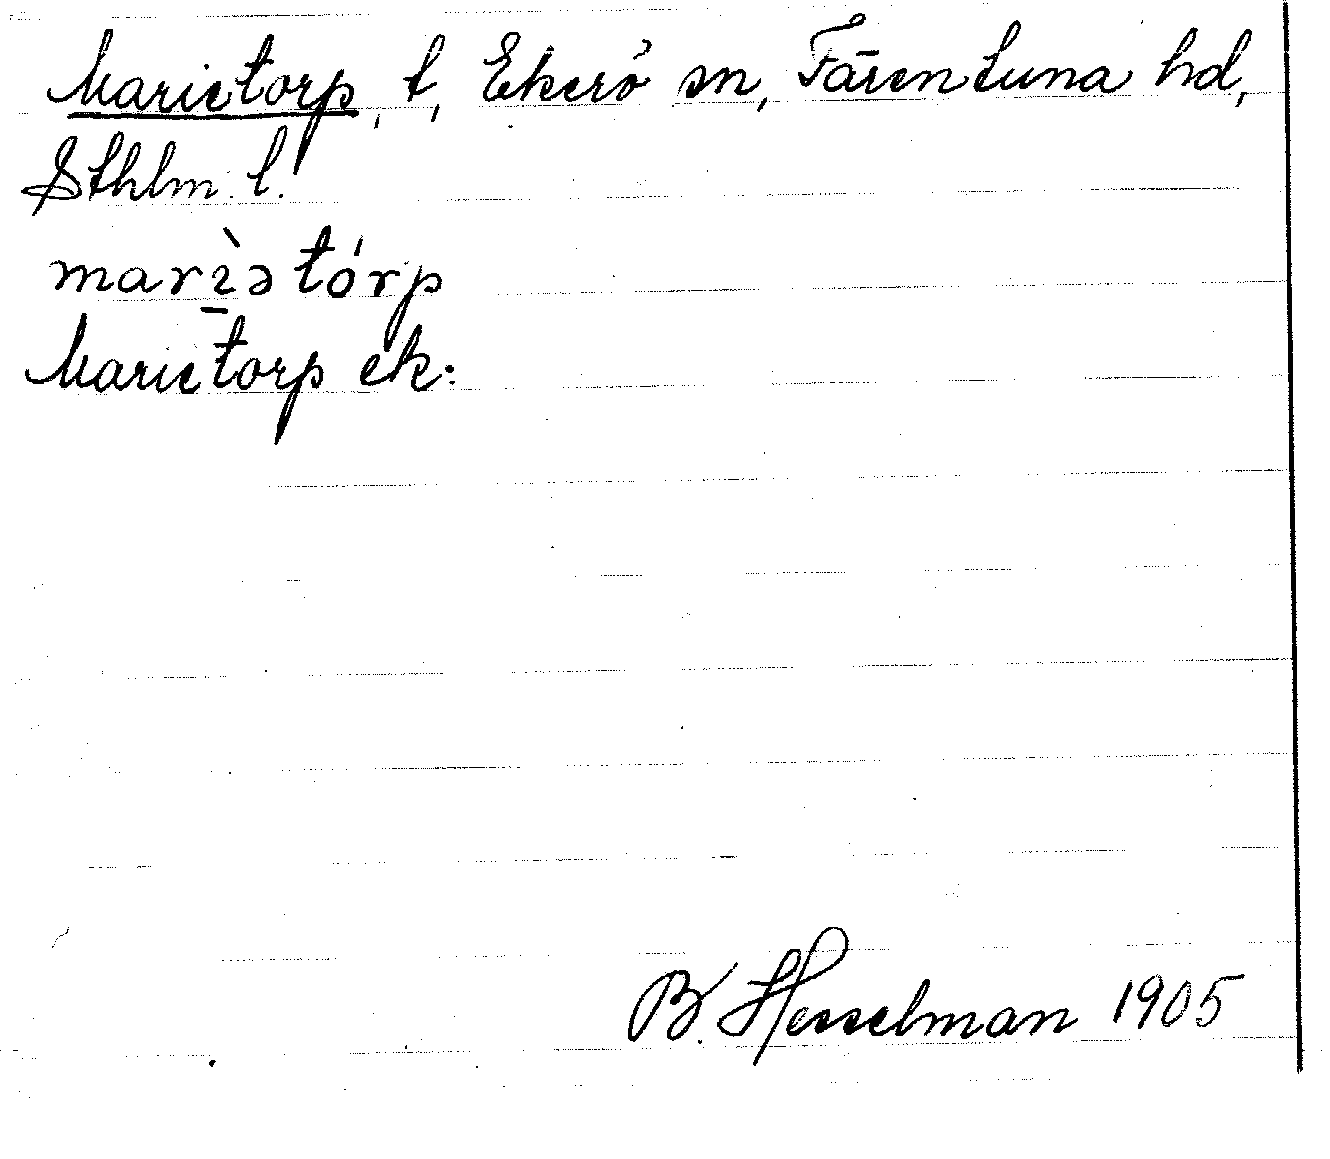 Marietorp, t, Ekerö sn, Färentuna hd,
Sthlm. l.
marìətórp
Marietorp ek:
B. Hesselman 1905